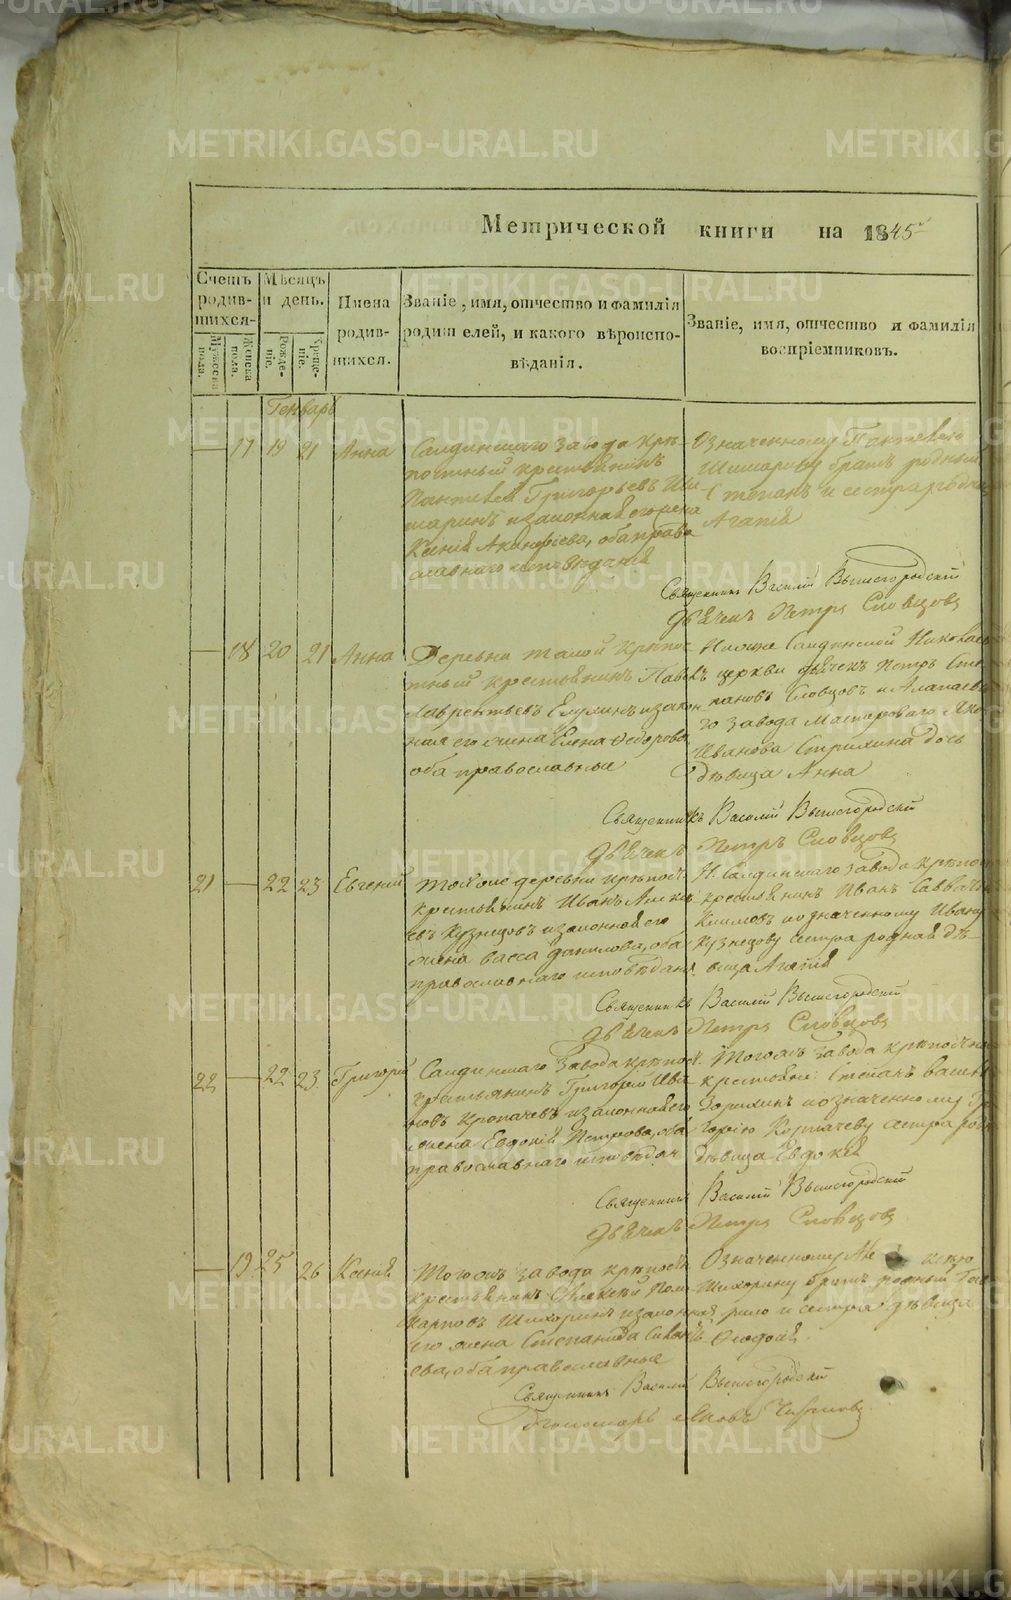 METRIKI.GASO-URAL.RU
Метрической книги на 1845й
Счетъ родив-шихся.
Мужеска пола.
Женска пола.
Мѣсяцъ и день.
Рожде-ніе.
Креще-ніе.
Имена родив-шихся.
Званіе, имя, отчество и фамилія родителей, и какого вѣроиспо-вѣданія.
Званіе, имя, отчество и фамилія воспріемниковъ.
Генварь
17 19 21 Анна
Салдинскаго завода крѣ-
постный крестьянинъ
Григорьевъ Ши-
и законная его жена
Ксенія оба право
славнаго исповѣданія
Означенному
братъ родный
Степанъ и сестра родная
Агапія
Священникъ Василій Вышегородскій
Дьячекъ Петръ Словцовъ
18 20 21 Анна
Деревни крѣпос
тный крестьянинъ Павелъ
Лаврентьевъ и закон
ная его жена Елена Ѳедорова
оба православные
Салдинской Николаев
церкви дьячекъ Петръ Сте
пановъ Словцовъ и Алапаевска
го завода мастероваго
Иванова дочь
дѣвица Анна
Священникъ Василій Вышегородскій
Дьячекъ Петръ Словцовъ
21 22 23 Евгеній
Той же деревни крѣпост
крестьянинъ Иванъ Алексѣ
евъ Кузнецовъ и законная его
жена Васса Данилова, оба
православнаго исповѣданія
Н. Салдинскаго завода крѣпост
крестьянинъ Иванъ Саввичъ
Климовъ и означенному Ивану
Кузнецову сестра родная дѣ-
вица Агапія
Священникъ Василій Вышегородскій
Дьячекъ Петръ Словцовъ
22 22 23 Григорій
Салдинскаго завода крѣпост
крестьянинъ Григорій Ива
новъ Кропачевъ и законная его
жена Евдокія Петрова, оба
православнаго исповѣдан
Тогожъ завода крѣпостной
крестьянинъ Степанъ
Зорихинъ и означенному Гри
горію сестра родн
дѣвица Евдокія
Священникъ Василій Вышегородскій
Дьячекъ Петръ Словцовъ
19 25 26 Ксенія
Тогожъ завода крѣпостн
крестьянинъ Алексѣй Пол
карповъ Шихоринъ и законная
его жена Степанида
ева, оба православные
Означенному
Шихорину братъ родный Гав
рило и сестра дѣвица
Ѳедосія
Священникъ Василій Вышегородскій
Пономарь Яковъ